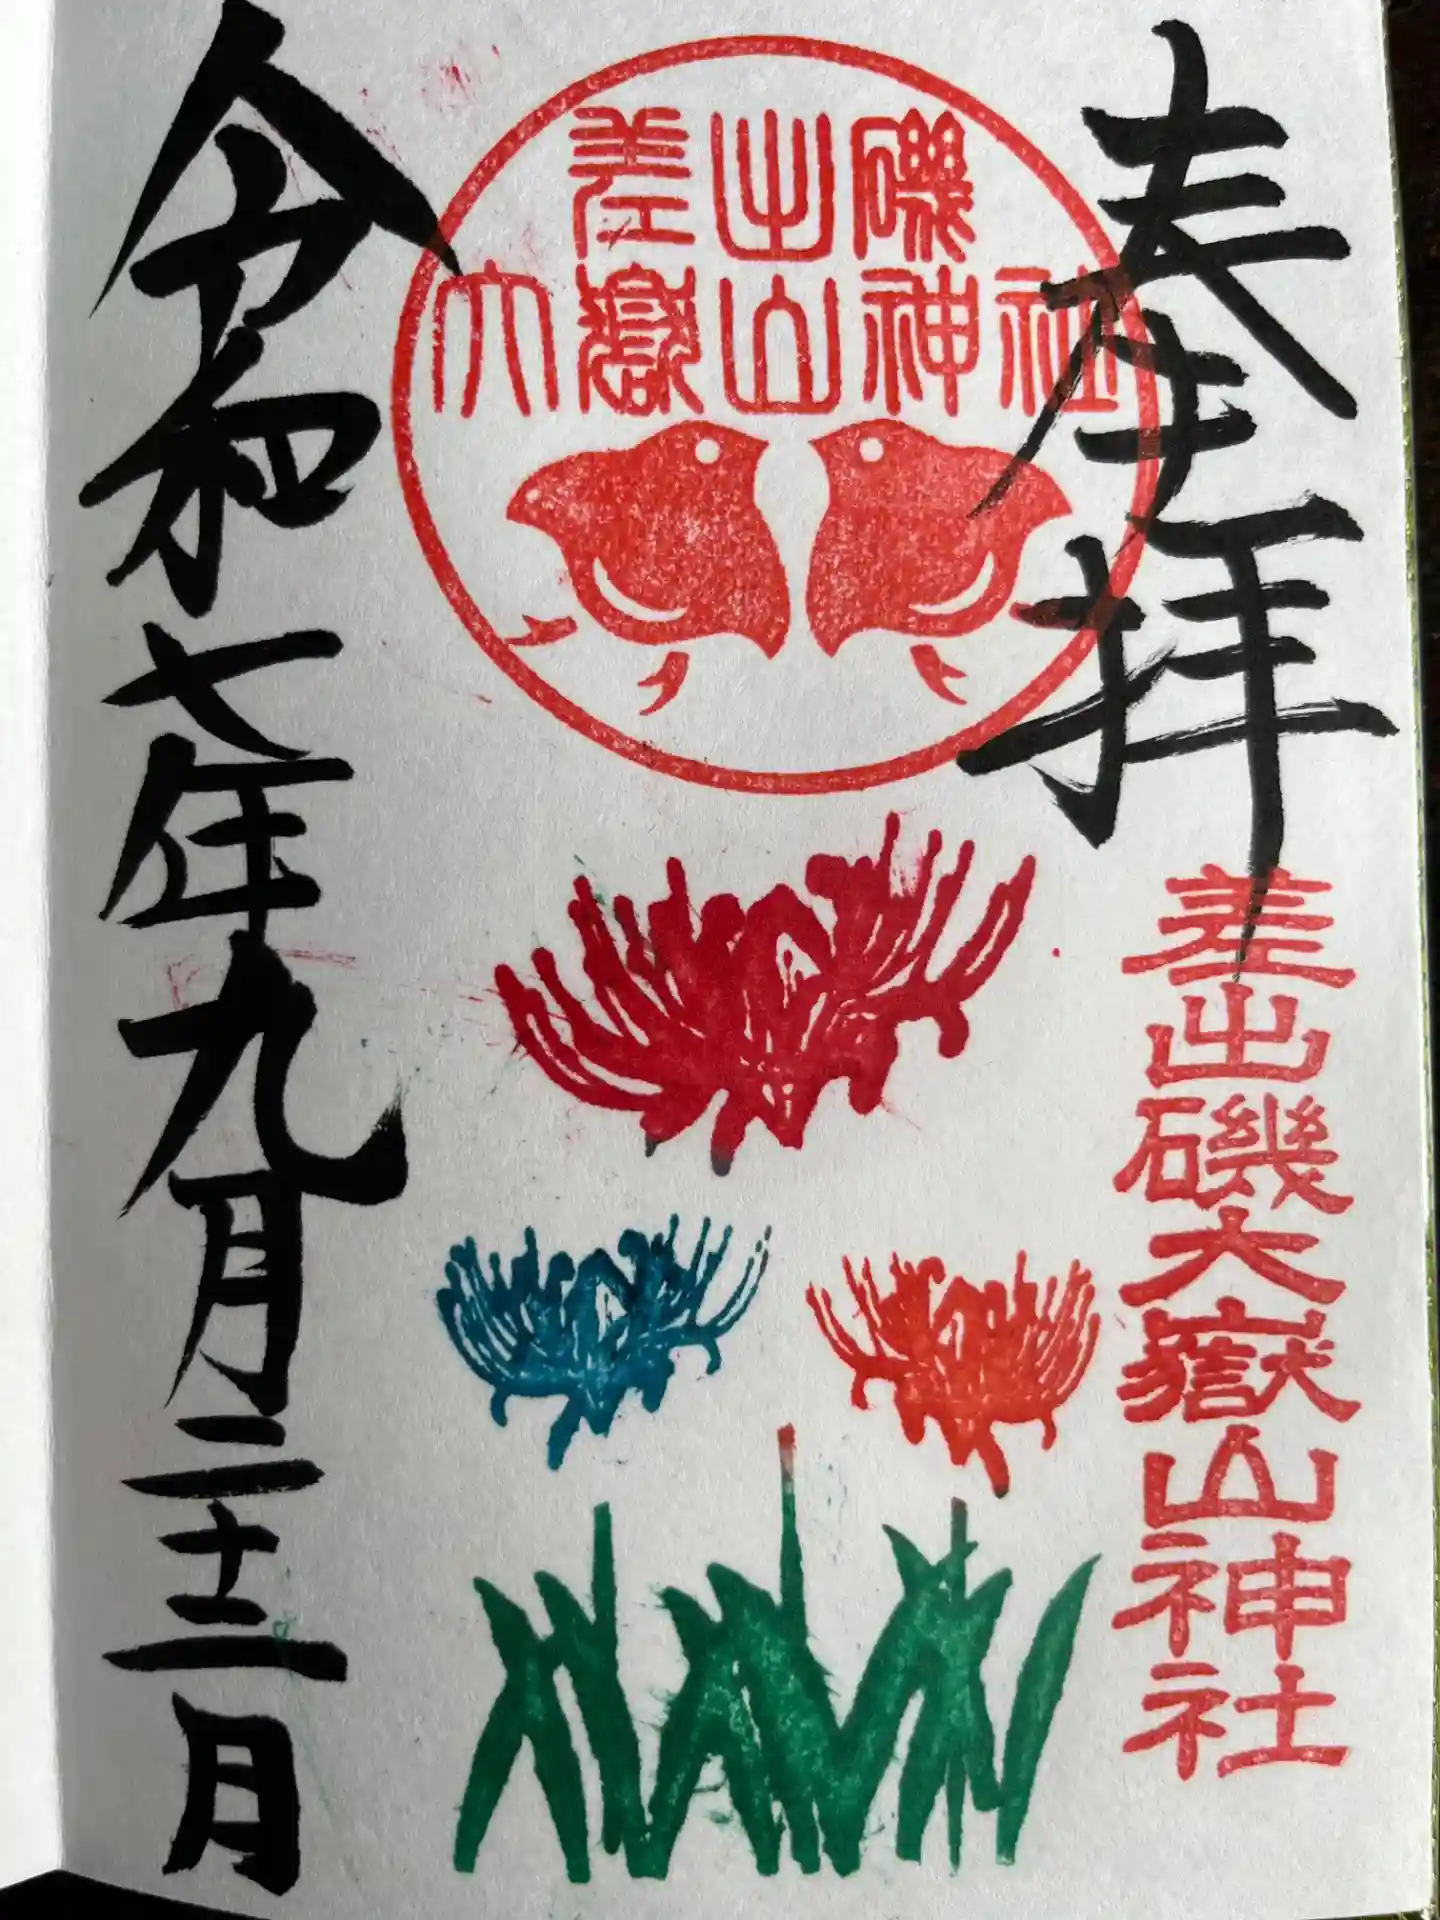 奉拝
差出磯大嶽山神社
差出磯
大嶽山神社
令和七年九月二十二日